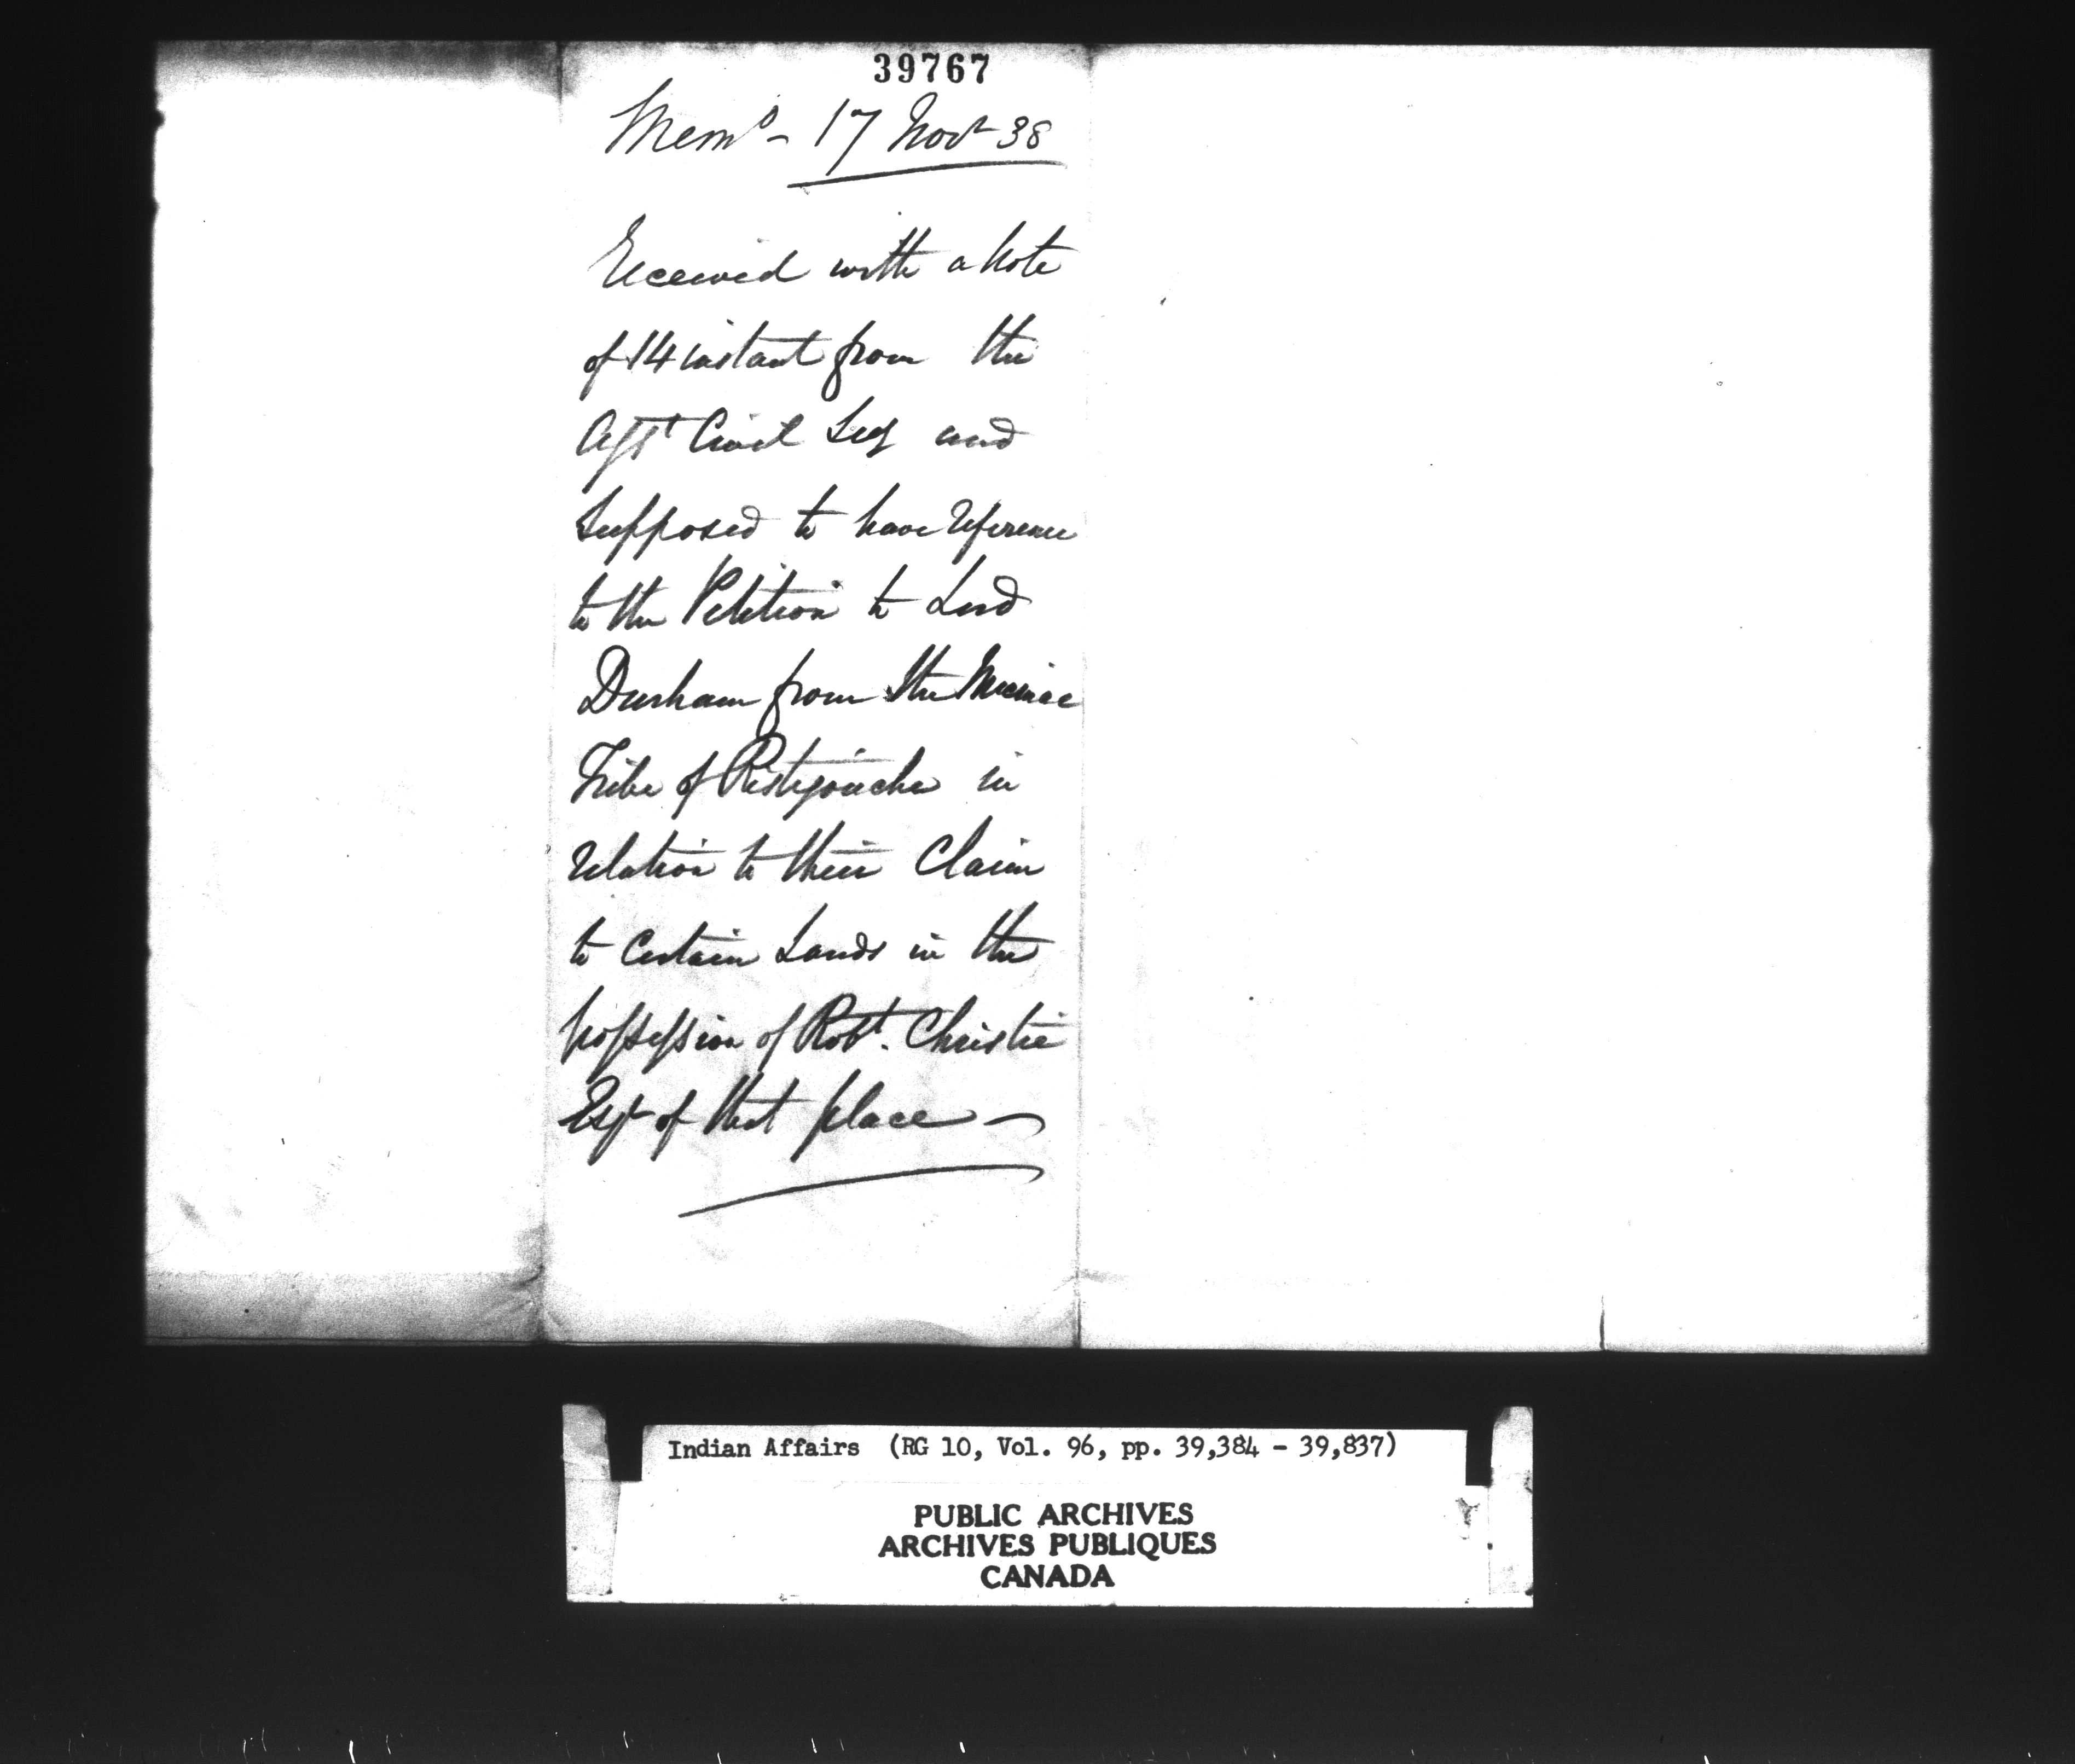 39767
Memo - 17 Novr 38
Received with a Note
of 14 instant from the
Asst Civil Secy and
Supposed to have reference
to the Petition to Lord
Durham from the Micmac
Tribe of Ristigouche in
relation to their Claim
to Certain Lands in the
possession of Robt. Christie
Esqr of that place —
Indian Affairs (RG 10, Vol. 96, pp. 39,384 - 39,837)
PUBLIC ARCHIVES
ARCHIVES PUBLIQUES
CANADA